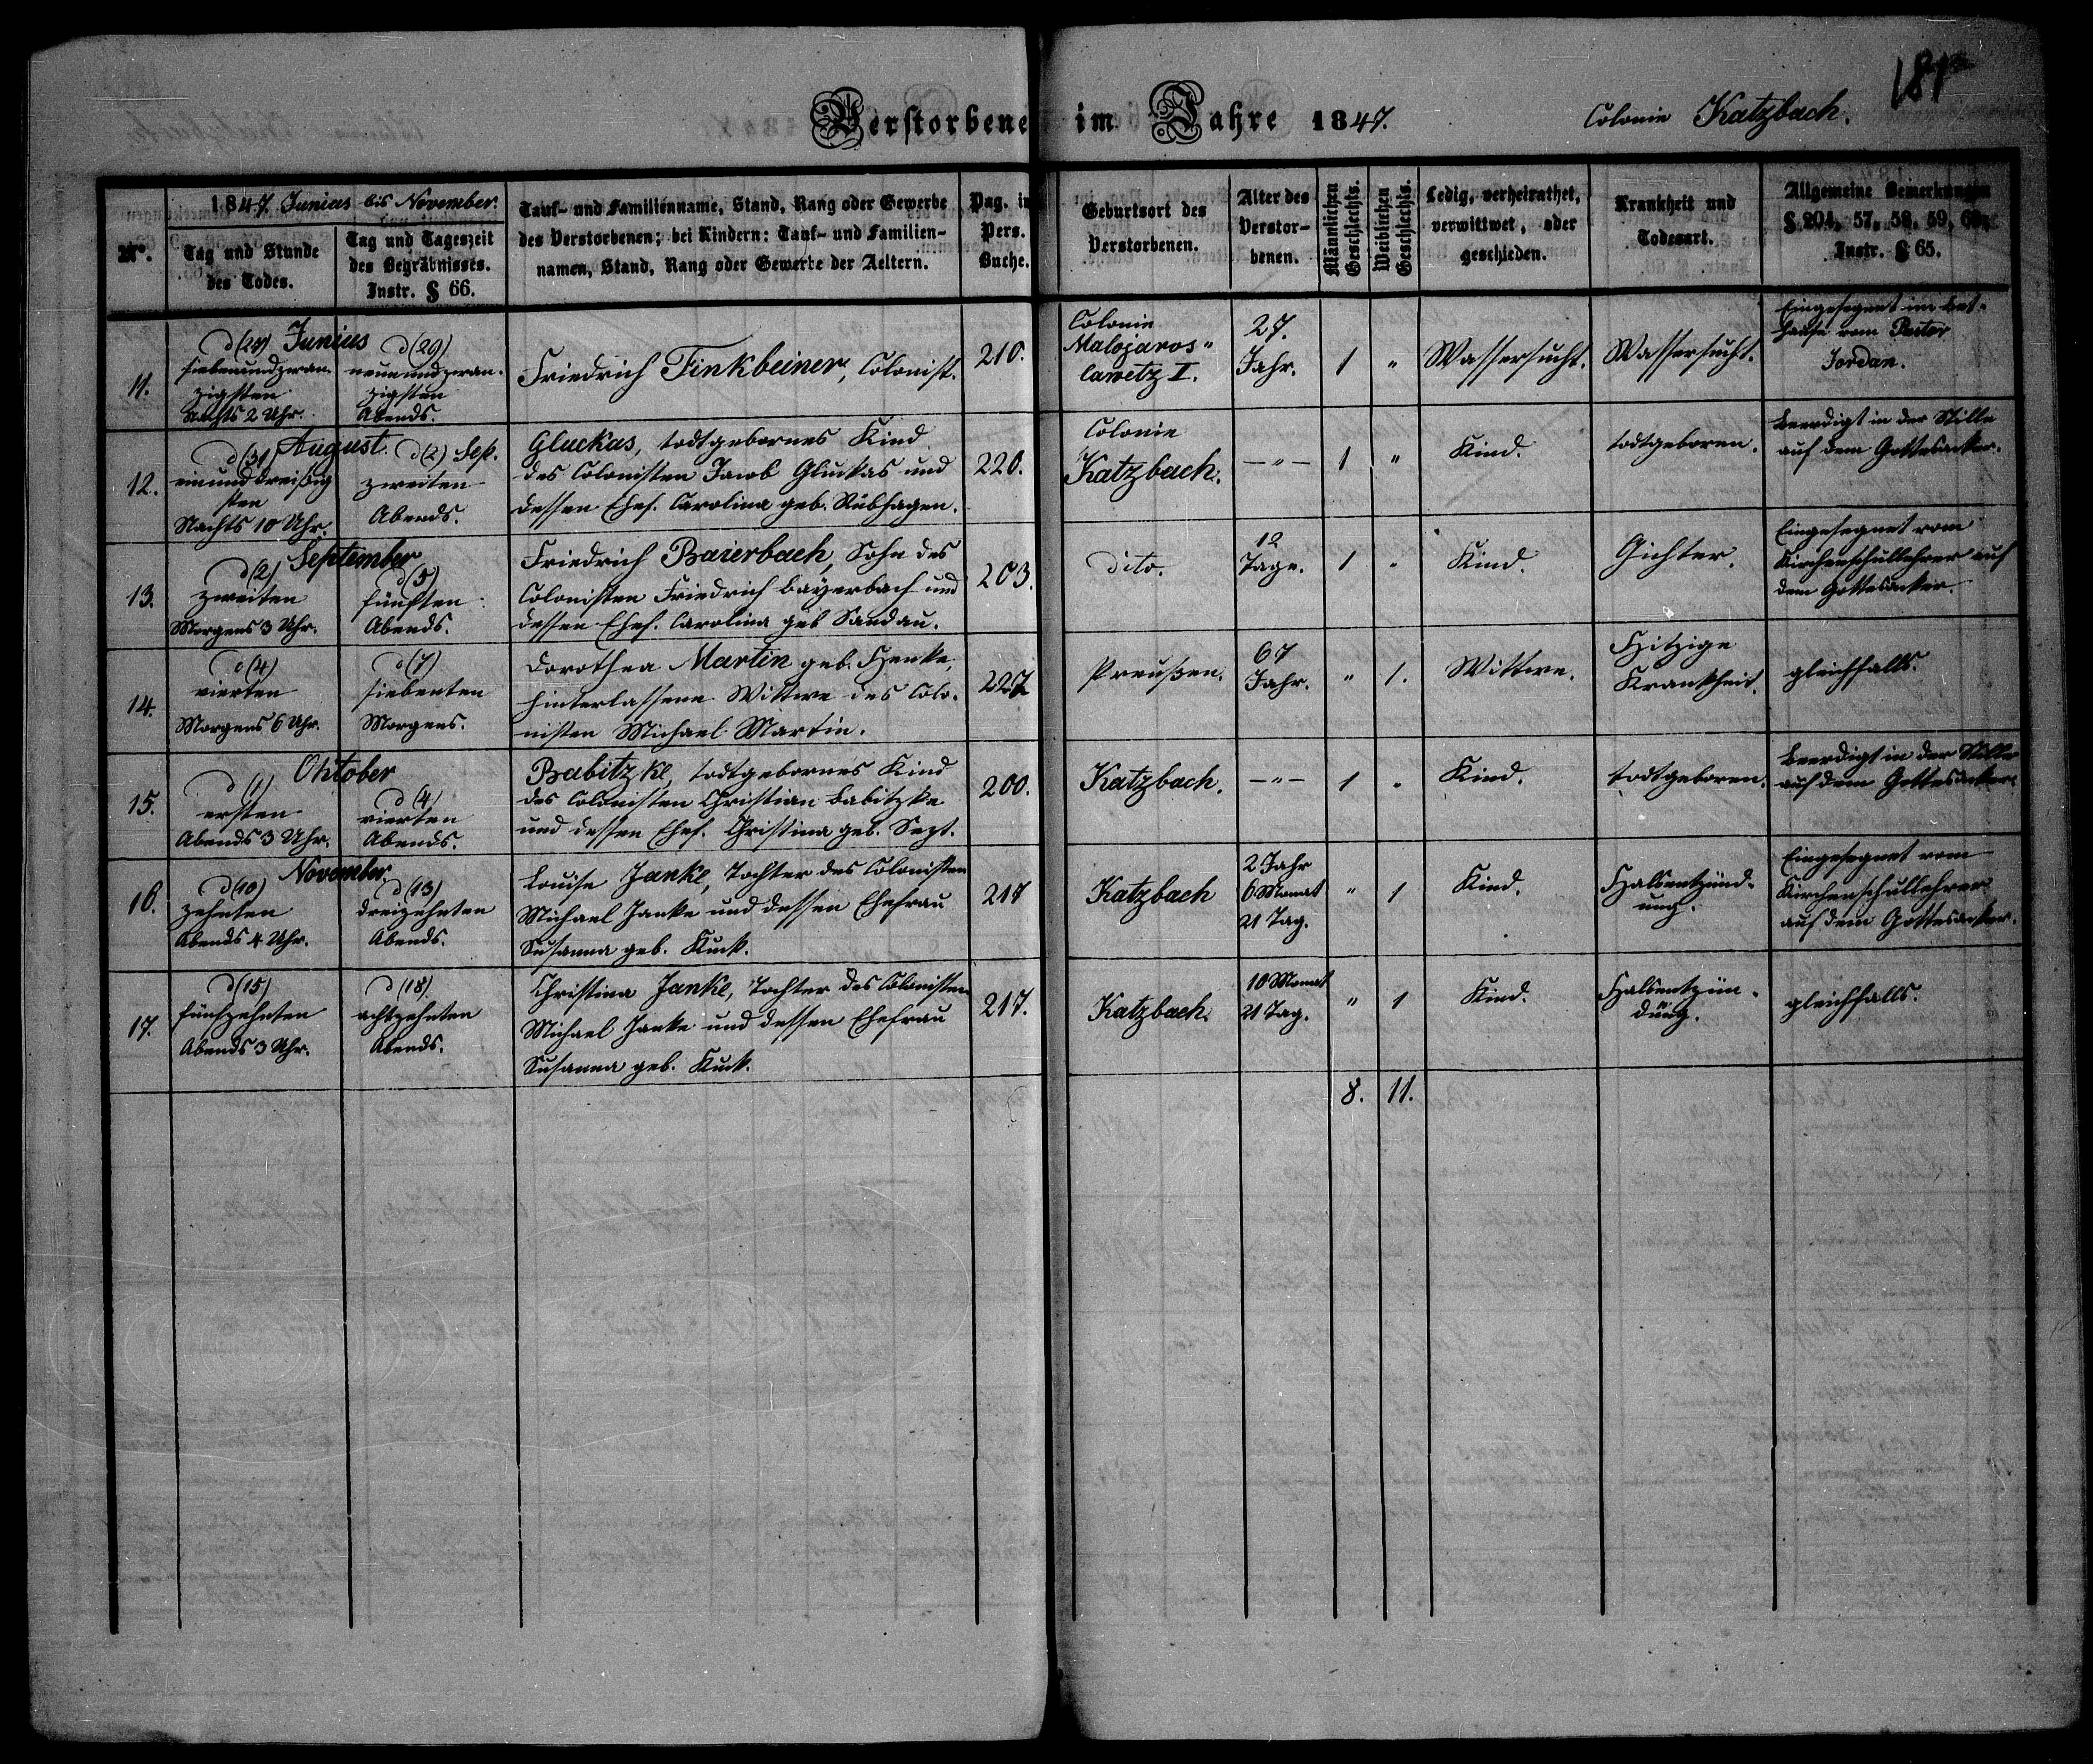 181
Verstorbene im Jahre 1847.
Colonie Katzbach.
No.
1847. Junius bis November.
Tag und Stunde
des Todes.
Tag und Tageszeit
des Begräbnisses.
Instr. § 66.
Tauf- und Familienname, Stand, Rang oder Gewerbe
des Verstorbenen; bei Kindern: Tauf- und Familien-
namen, Stand, Rang oder Gewerbe der Aeltern.
Pag. in
Pers.
Buche.
Geburtsort des
Verstorbenen.
Alter des
Verstor-
benen.
Männlichen
Geschlechts.
Weiblichen
Geschlechts.
Ledig, verheirathet,
verwittwet, oder
geschieden.
Krankheit und
Todesart.
Allgemeine Bemerkungen
§ 204, 57, 58, 59, 60,
Instr. § 65.
11.
Junius
d (27)
siebenundzwan-
zigsten
Nachts 2 Uhr.
d (29)
neunundzwan-
zigsten
Abends.
Friedrich Finkbeiner, Colonist.
210.
Colonie
Malojaros-
lawetz I.
27.
Jahr.
1
"
Wassersucht.
Wassersucht.
Eingesegnet im Bet-
hause vom Pastor
Jordan.
12.
August.
d (31)
einunddreißig
sten
Nachts 10 Uhr.
d (2) Sep.
zweiten
Abends.
Gluckas, todtgebornes Kind
des Colonisten Jacob Gluckas und
dessen Ehef. Carolina geb. Rübhagen.
220.
Colonie
Katzbach.
— " —
1
"
Kind.
todtgeboren.
Beerdigt in der Stille
auf dem Gottesacker.
13.
September
d (2)
zweiten
Morgens 3 Uhr.
d (5)
fünften
Abends.
Friedrich Baierbach, Sohn des
Colonisten Friedrich Bayerbach und
dessen Ehef. Carolina geb. Sandau.
203.
dito.
12
Tage.
1
"
Kind.
Gichter.
Eingesegnet vom
Kirchenschullehrer auf
dem Gottesacker.
14.
d (4)
vierten
Morgens 6 Uhr.
d (7)
siebenten
Morgens.
Dorothea Martin geb. Henke,
hinterlassene Wittwe des Colo-
nisten Michael Martin.
227.
Preußen.
67
Jahr.
"
1.
Wittwe.
Hitzige
Krankheit.
gleichfalls.
15.
Oktober
d (1)
ersten
Abends 3 Uhr.
d (4)
vierten
Abends.
Babitzke, todtgebornes Kind
des Colonisten Christian Babitzke
und dessen Ehef. Christina geb. Sept.
200.
Katzbach.
— " —
1
"
Kind.
todtgeboren.
Beerdigt in der Stille
auf dem Gottesacker.
16.
November.
d (10)
zehnten
Abends 4 Uhr.
d (13)
dreizehnten
Abends.
Louise Janke, Tochter des Colonisten
Michael Janke und dessen Ehefrau
Susanna geb. Kuck.
217
Katzbach
2 Jahr
6 Monat
21 Tag.
"
1
Kind.
Halsentzünd-
ung.
Eingesegnet vom
Kirchenschullehrer
auf dem Gottesacker.
17.
d (15)
fünfzehnten
Abends 3 Uhr.
d (18)
achtzehnten
Abends.
Christina Janke, Tochter des Colonisten
Michael Janke und dessen Ehefrau
Susanna geb. Kuck.
217.
Katzbach.
10 Monat
21 Tag.
"
1
Kind.
Halsentzün-
dung.
gleichfalls.
8.
11.